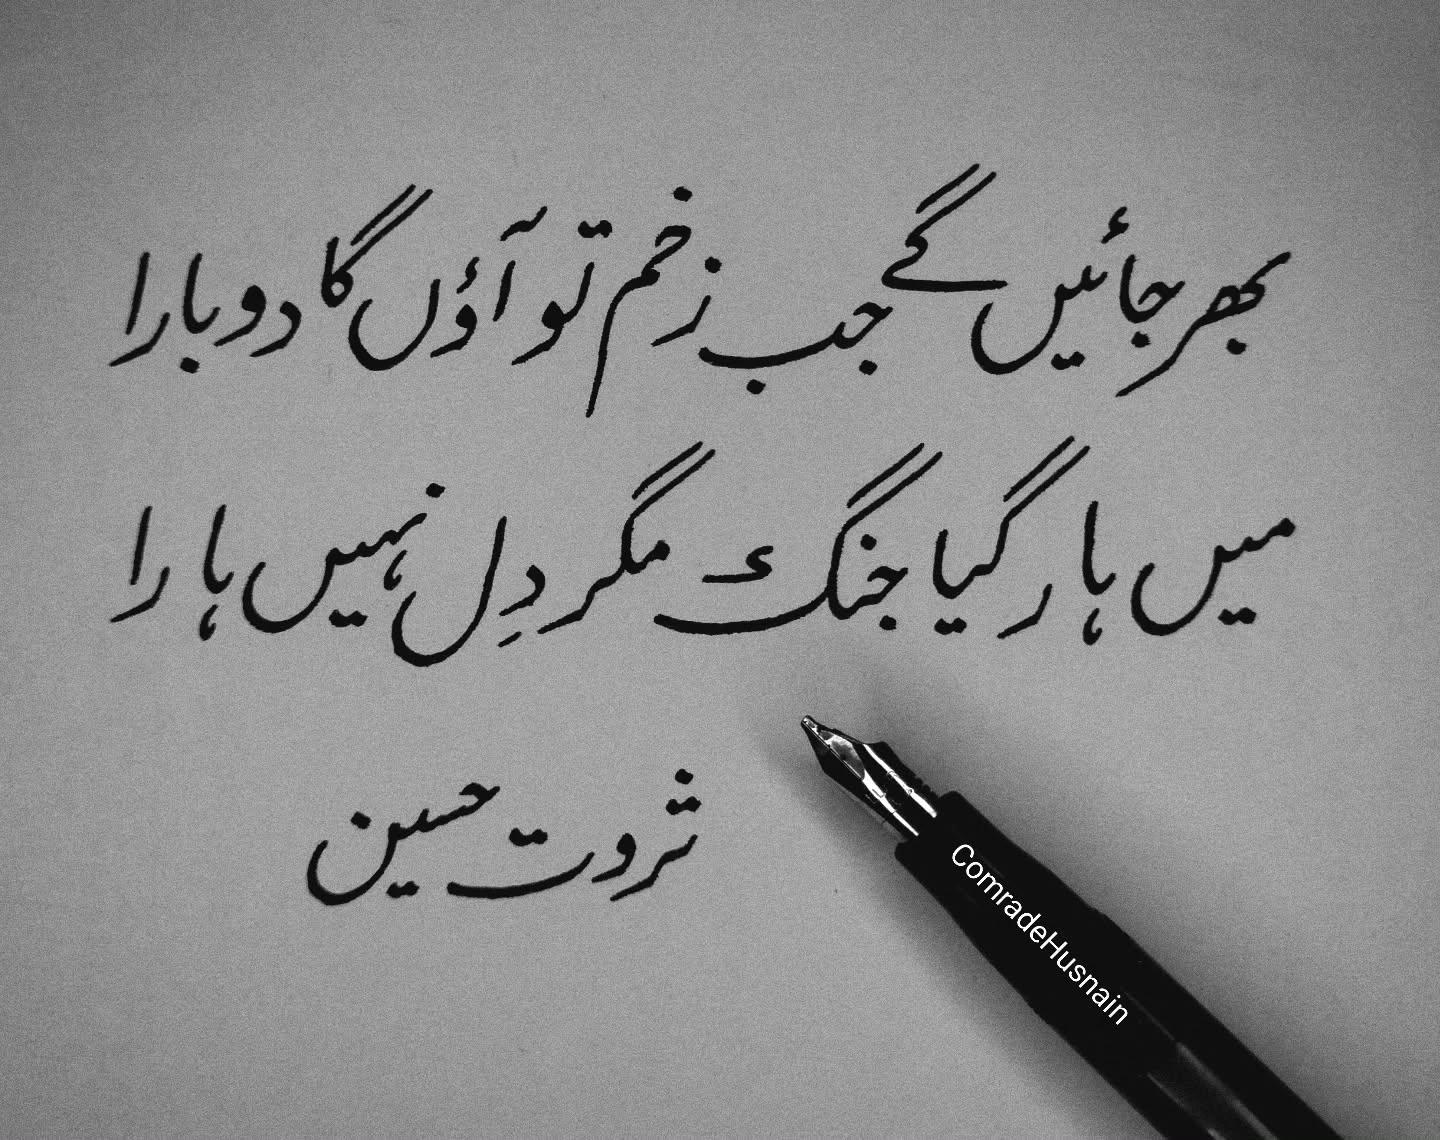 بھر جائیں گے جب زخم تو آؤں گا دوبارا
میں ہار گیا جنگ مگر دِل نہیں ہارا
ثروت حسین
ComradeHusnain